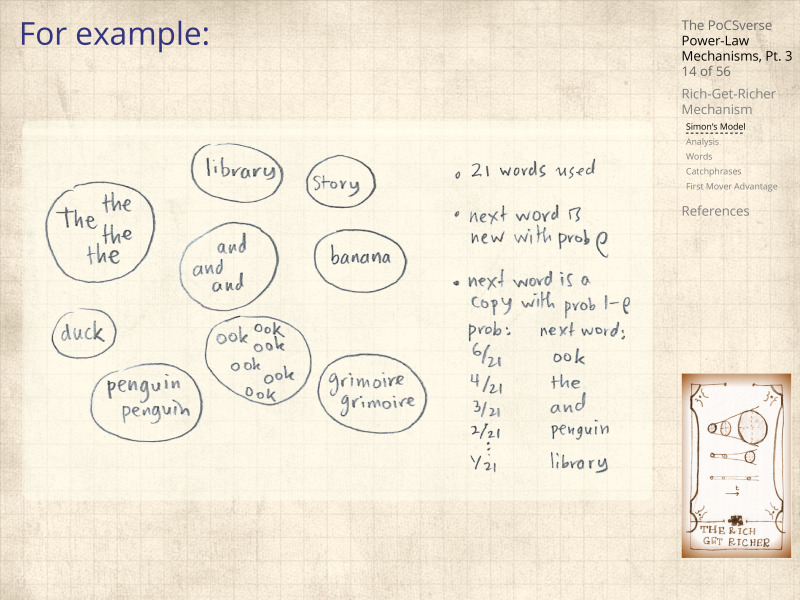 For example:
library
Story
The the
the
the
and
and
and
banana
duck
ook ook
ook
ook
ook
ook
penguin
penguin
grimoire
grimoire
• 21 words used
• next word is
new with prob ρ
• next word is a
copy with prob 1-ρ
prob: next word:
6/21 ook
4/21 the
3/21 and
2/21 penguin
⋮
1/21 library
The PoCSverse
Power-Law
Mechanisms, Pt. 3
14 of 56
Rich-Get-Richer
Mechanism
Simon's Model
Analysis
Words
Catchphrases
First Mover Advantage
References
t
THE RICH
GET RICHER